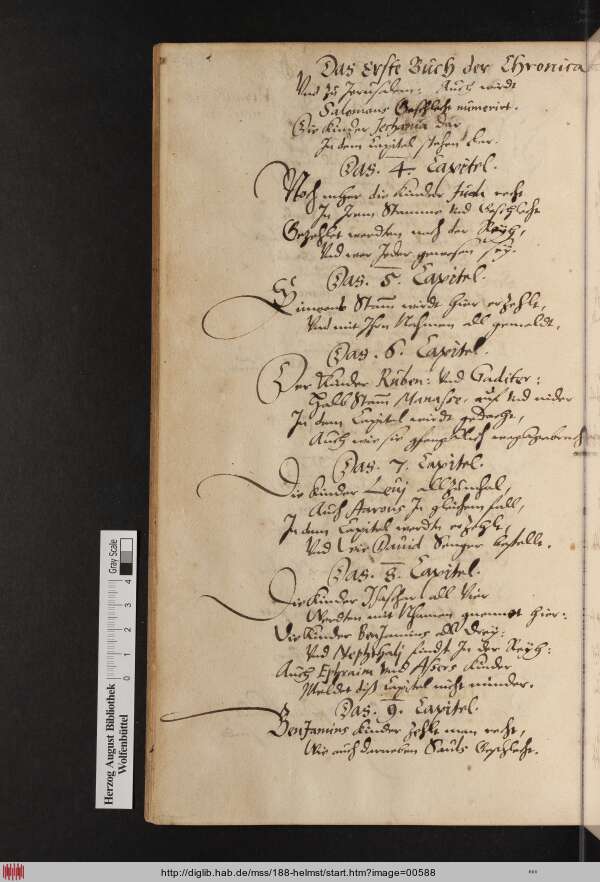 Das Erste Buch der Chronica
Vnd zu Jerusalem: Auch wirdt
Salomons Geschlecht numerirt.
Die Kinder Jechania dar
In dem Capitel stehen klar.
Das. 4. Capitel.
Noch mehr die Kinder Juda recht
In Irem Stamme vnd Geschlecht
Gezehlet werdten nach der Reyh,
Vnd wer Jeder gewesen sey.
Das. 5. Capitel.
Simeons Stam wirdt hier erzehlt,
Vnd mit Ihrn Nahmen all gemeldt,
Das. 6. Capitel.
Der Kinder Ruben: vnd Gaditer:
Halb Stam Manasse, auf vnd nider
In dem Capitel wirdt gedacht,
Auch wie sie
Das. 7. Capitel.
Die Kinder Leuj allzumhal,
Auch Aarons In gleichem fall,
In dem Capitel werdtn erzehlt,
Vnd wie Dauid Senger bestellt.
Das. 8. Capitel.
Die Kinder Isaschar all vier
Werdten mit Nhamen genennet hier:
Die Kinder Benjamins all drey:
Vnd Nephthalj sindt In der Reyh:
Auch Ephraim vnd Assers Kinder
Meldet diß Capitel nicht minder.
Das. 9. Capitel.
Benjamins Kinder zehlt man recht,
Wie auch darneben Sauls Geschlecht.
Gray Scale
0 1 2 3 4
Herzog August Bibliothek
Wolfenbüttel
http://diglib.hab.de/mss/188-helmst/start.htm?image=00588